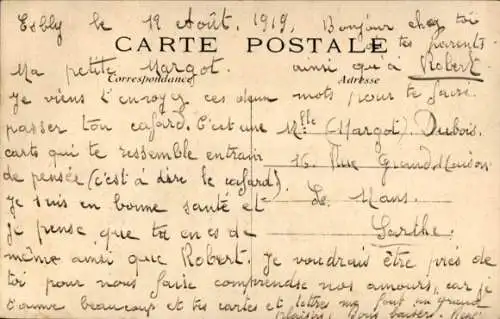 Esbly le 12 Août, 1919, Bonjour chez toi
CARTE POSTALE à tes parents
Ma petite Margot. ainsi qu'à Robert
Correspondance Adresse
Je viens t'envoyer ces deux mots pour te faire
passer ton cafard. C'est une Mlle (Margot). Dubois.
carte qui te ressemble entrain 16. Rue Grand Maison
de pensée (c'est à dire le cafard). Le Mans.
Je suis en bonne santé et Sarthe.
je pense que tu en es de
même ainsi que Robert. Je voudrais être près de
toi pour nous faire comprendre nos amours, car je
t'aime beaucoup et tes cartes et lettres me font un grand
plaisir. Bons baisers.